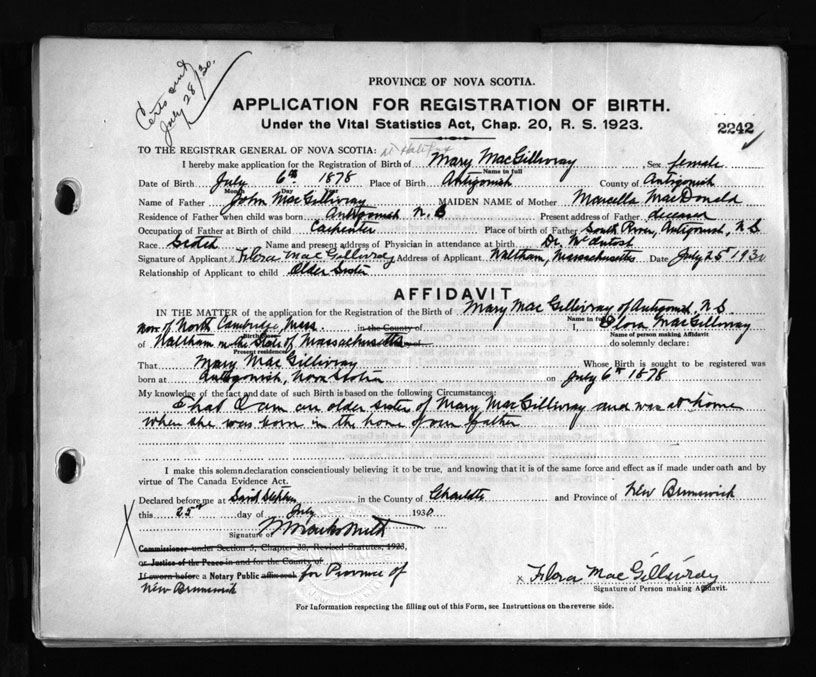 Certs sent
July 28/30.
PROVINCE OF NOVA SCOTIA.
APPLICATION FOR REGISTRATION OF BIRTH.
Under the Vital Statistics Act, Chap. 20, R. S. 1923.
2242
TO THE REGISTRAR GENERAL OF NOVA SCOTIA: at Halifax
I hereby make application for the Registration of Birth of Mary MacGillivray , Sex female
Name in full
Date of Birth July 6th 1878 Place of Birth Antigonish County of Antigonish
Month Day
Name of Father John MacGillivray MAIDEN NAME of Mother Marcella MacDonald
Residence of Father when child was born Antigonish N. S Present address of Father deceased
Occupation of Father at Birth of child Carpenter Place of birth of Father South River, Antigonish, N.S
Race Scotch Name and present address of Physician in attendance at birth Dr. McIntosh
Signature of Applicant x Flora MacGillivray Address of Applicant Waltham, Massachusetts Date July 25th 1930
Relationship of Applicant to child Older Sister
AFFIDAVIT
IN THE MATTER of the application for the Registration of Birth of Mary MacGillivray of Antigonish, N.S.
Name in full
now of North Cambridge, Mass. in the County of I, Flora MacGillivray
Name of person making Affidavit
of Waltham in the State of Massachusetts do solemnly declare:
Present residence
That Mary MacGillivray Whose Birth is sought to be registered was
born at Antigonish, Nova Scotia on July 6th 1878
My knowledge of the fact and date of such Birth is based on the following Circumstances:
That I am an older sister of Mary MacGillivray and was at home
when she was born in the home of our father
I make this solemn declaration conscientiously believing it to be true, and knowing that it is of the same force and effect as if made under oath and by
virtue of The Canada Evidence Act.
Declared before me at Saint Stephen in the County of Charlotte and Province of New Brunswick
this 25th day of July 1930.
Signature of
Commissioner under Section 3, Chapter 38, Revised Statutes, 1923,
or Justice of the Peace in and for the County of
If sworn before a Notary Public affix seal for Province of
New Brunswick
x Flora MacGillivray
Signature of Person making Affidavit.
For Information respecting the filling out of this Form, see Instructions on the reverse side.